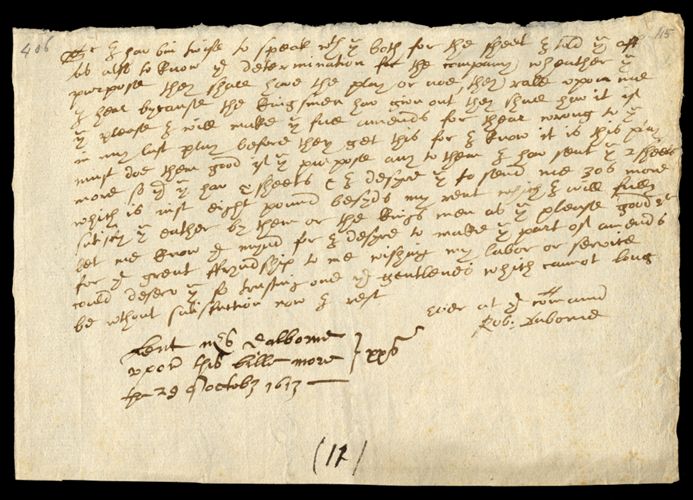 406
115
Sr I hav bin twise to speak wth yu both for the sheet I told yu off
as also to know yr determination for the company wheather yu
purpose they shall have the play or noe, they rale upon me
I hear bycause the kingsmen hav given out they shall hav it if
yu please I will make yu full amends for thear wrong to yu
in my last play before they get this for I know it is this play
must doe them good if yu purpose any to them I hav sent yu 2 sheets
more so yt yu hav x sheets & I desyre yu to send me 30s more
which is just eight pound besyds my rent which I will fully
satisfy yu eather by them or the kings men as yu please good Sr
let me know yr mynd for I desyre to make yu part of amends
for yr great ffryndship to me wishing my labor or service
could deserv yu so trusting one yr gentlenes which cannot long
be without satisfaction now I rest
ever at yr command
Rob: Daborne
Lent mr daborne
upon this bille more
the 29 of octob3 1613
xxs
(12)